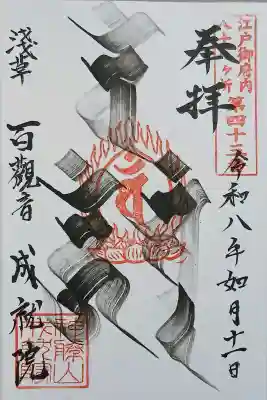 江戸御府内
八十八ヶ所
第四十三番
奉拝
令和八年如月十一日
淺草 百觀音 成就院